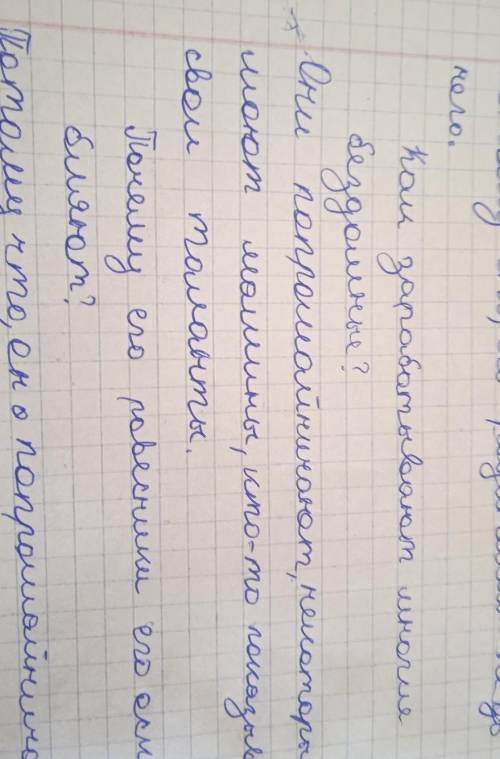 него.
Как зарабатывают многие
бездомные?
Они попрошайничают, некоторы
моют машины, кто-то показыв
свои таланты.
Почему его ровесники его оск
бляют?
Потому что, он о попрошайнича